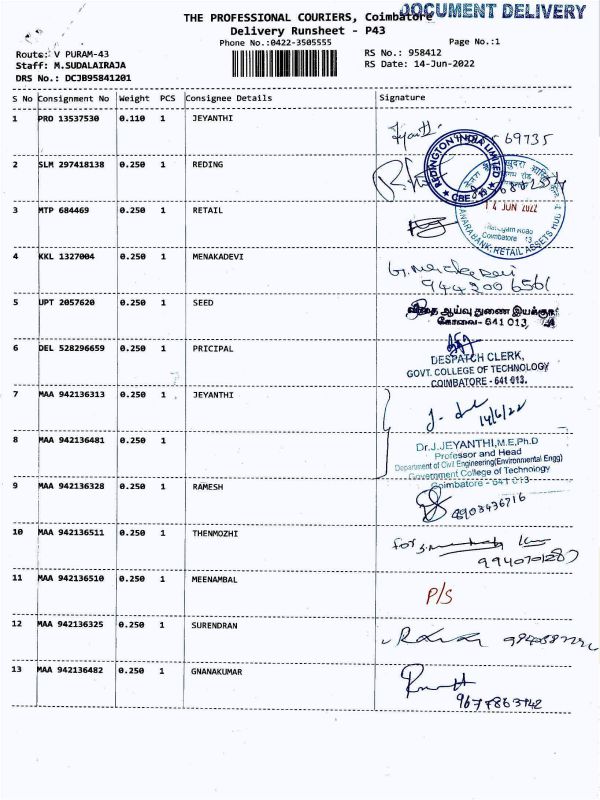 DOCUMENT DELIVERY
THE PROFESSIONAL COURIERS, Coimbatore
Delivery Runsheet - P43
Phone No.:0422-3505555
Page No.:1
Route: V PURAM-43
RS No.: 958412
Staff: M.SUDALAIRAJA
RS Date: 14-Jun-2022
DRS No.: DCJB95841201
S No Consignment No Weight PCS Consignee Details Signature
1 PRO 13537530 0.110 1 JEYANTHI
69735
REDINGTON INDIA LIMITED
CBE
2 SLM 297418138 0.250 1 REDING
3 MTP 684469 0.250 1 RETAIL
14 JUN 2022
Coimbatore 13
CANARA BANK, RETAIL ASSETS HUB
4 KKL 1327004 0.250 1 MENAKADEVI
5 UPT 2057620 0.250 1 SEED
விதை ஆய்வு துணை இயக்குநர்
கோவை- 641 013.
6 DEL 528296659 0.250 1 PRICIPAL
DESPATCH CLERK,
GOVT. COLLEGE OF TECHNOLOGY
COIMBATORE - 641 013.
7 MAA 942136313 0.250 1 JEYANTHI
14/6/22
8 MAA 942136481 0.250 1
Dr.J.JEYANTHI,M.E,Ph.D
Professor and Head
Department of Civil Engineering(Environmental Engg)
Government College of Technology
Coimbatore - 641 013.
9 MAA 942136328 0.250 1 RAMESH
8903436716
10 MAA 942136511 0.250 1 THENMOZHI
for
11 MAA 942136510 0.250 1 MEENAMBAL
P/S
12 MAA 942136325 0.250 1 SURENDRAN
13 MAA 942136482 0.250 1 GNANAKUMAR